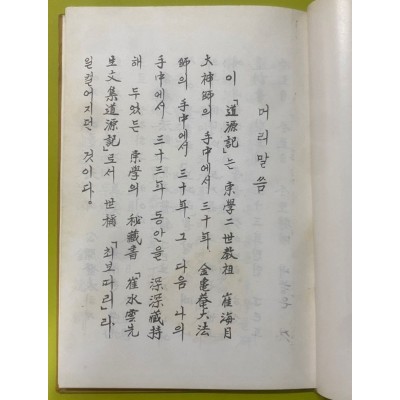 머리말씀
이「道源記」는 東學二世敎祖 崔海月
大神師의 手中에서 三十年 金演國大法
師의 手中에서 三十年. 그 다음 나의
手中에서 三十三年 동안을 深深藏持
해 두었든 東學의 秘藏書「崔水雲先
生文集道源記」로서 世稱「최보따리」라
일컬어지던 것이다。